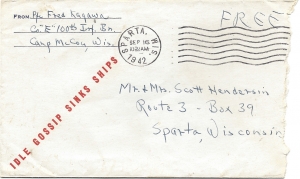 FROM Pfc Fred Kagawa
Co "E" 100th Inf. Bn.
Camp McCoy, Wis.
SPARTA, WIS.
SEP 16
1942
FREE
IDLE GOSSIP SINKS SHIPS
Mr. + Mrs. Scott Henderson
Route 3 - Box 39
Sparta, Wisconsin